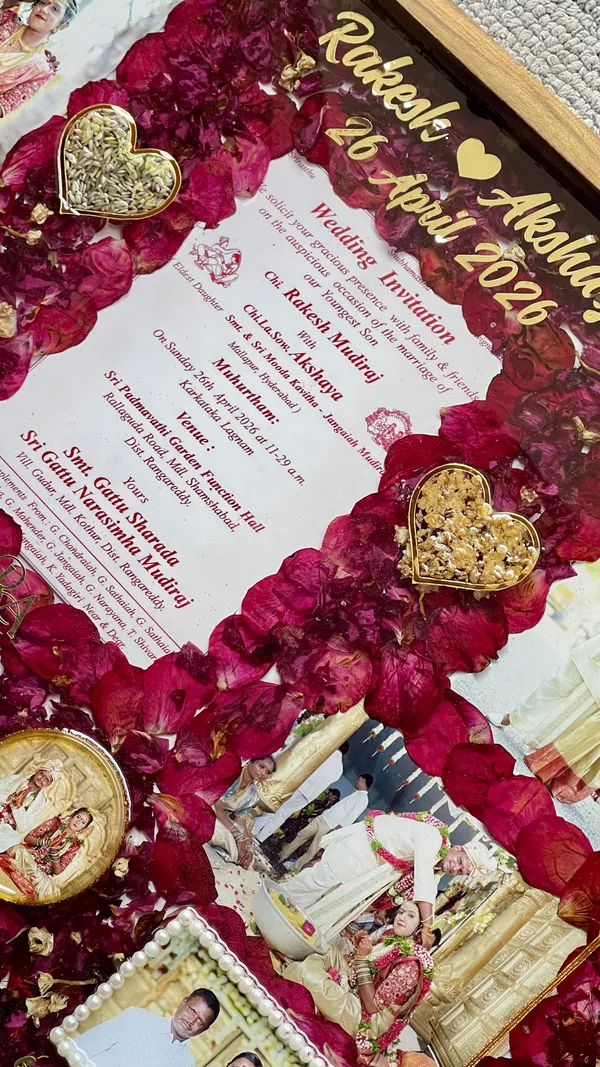 Rakesh Akshay
26 April 2026
Wedding Invitation
solicit your gracious presence with family & friends
on the auspicious occasion of the marriage of
our Youngest Son
Chi. Rakesh Mudiraj
With
Chi.La.Sow. Akshaya
Eldest Daughter Smt. & Sri Moode Kavitha - Jangaiah Mudiraj
Mallapur, Hyderabad)
Muhurtham:
On Sunday 26th April 2026 at 11-29 a.m.
Karkataka Lagnam
Venue :
Sri Padmavathi Garden Function Hall
Rallaguda Road, Mdl. Shamshabad,
Dist. Rangareddy.
Yours
Smt. Gattu Sharada
Sri Gattu Narasimha Mudiraj
Vill. Gudur, Mdl. Kothur, Dist. Rangareddy.
From : G. Chandraiah, G. Sathaiah, G. Sathaiah
G. Mahender, G. Jangaiah, G. Narayana, T. Shivar
K. Yadagiri Near & Dear.